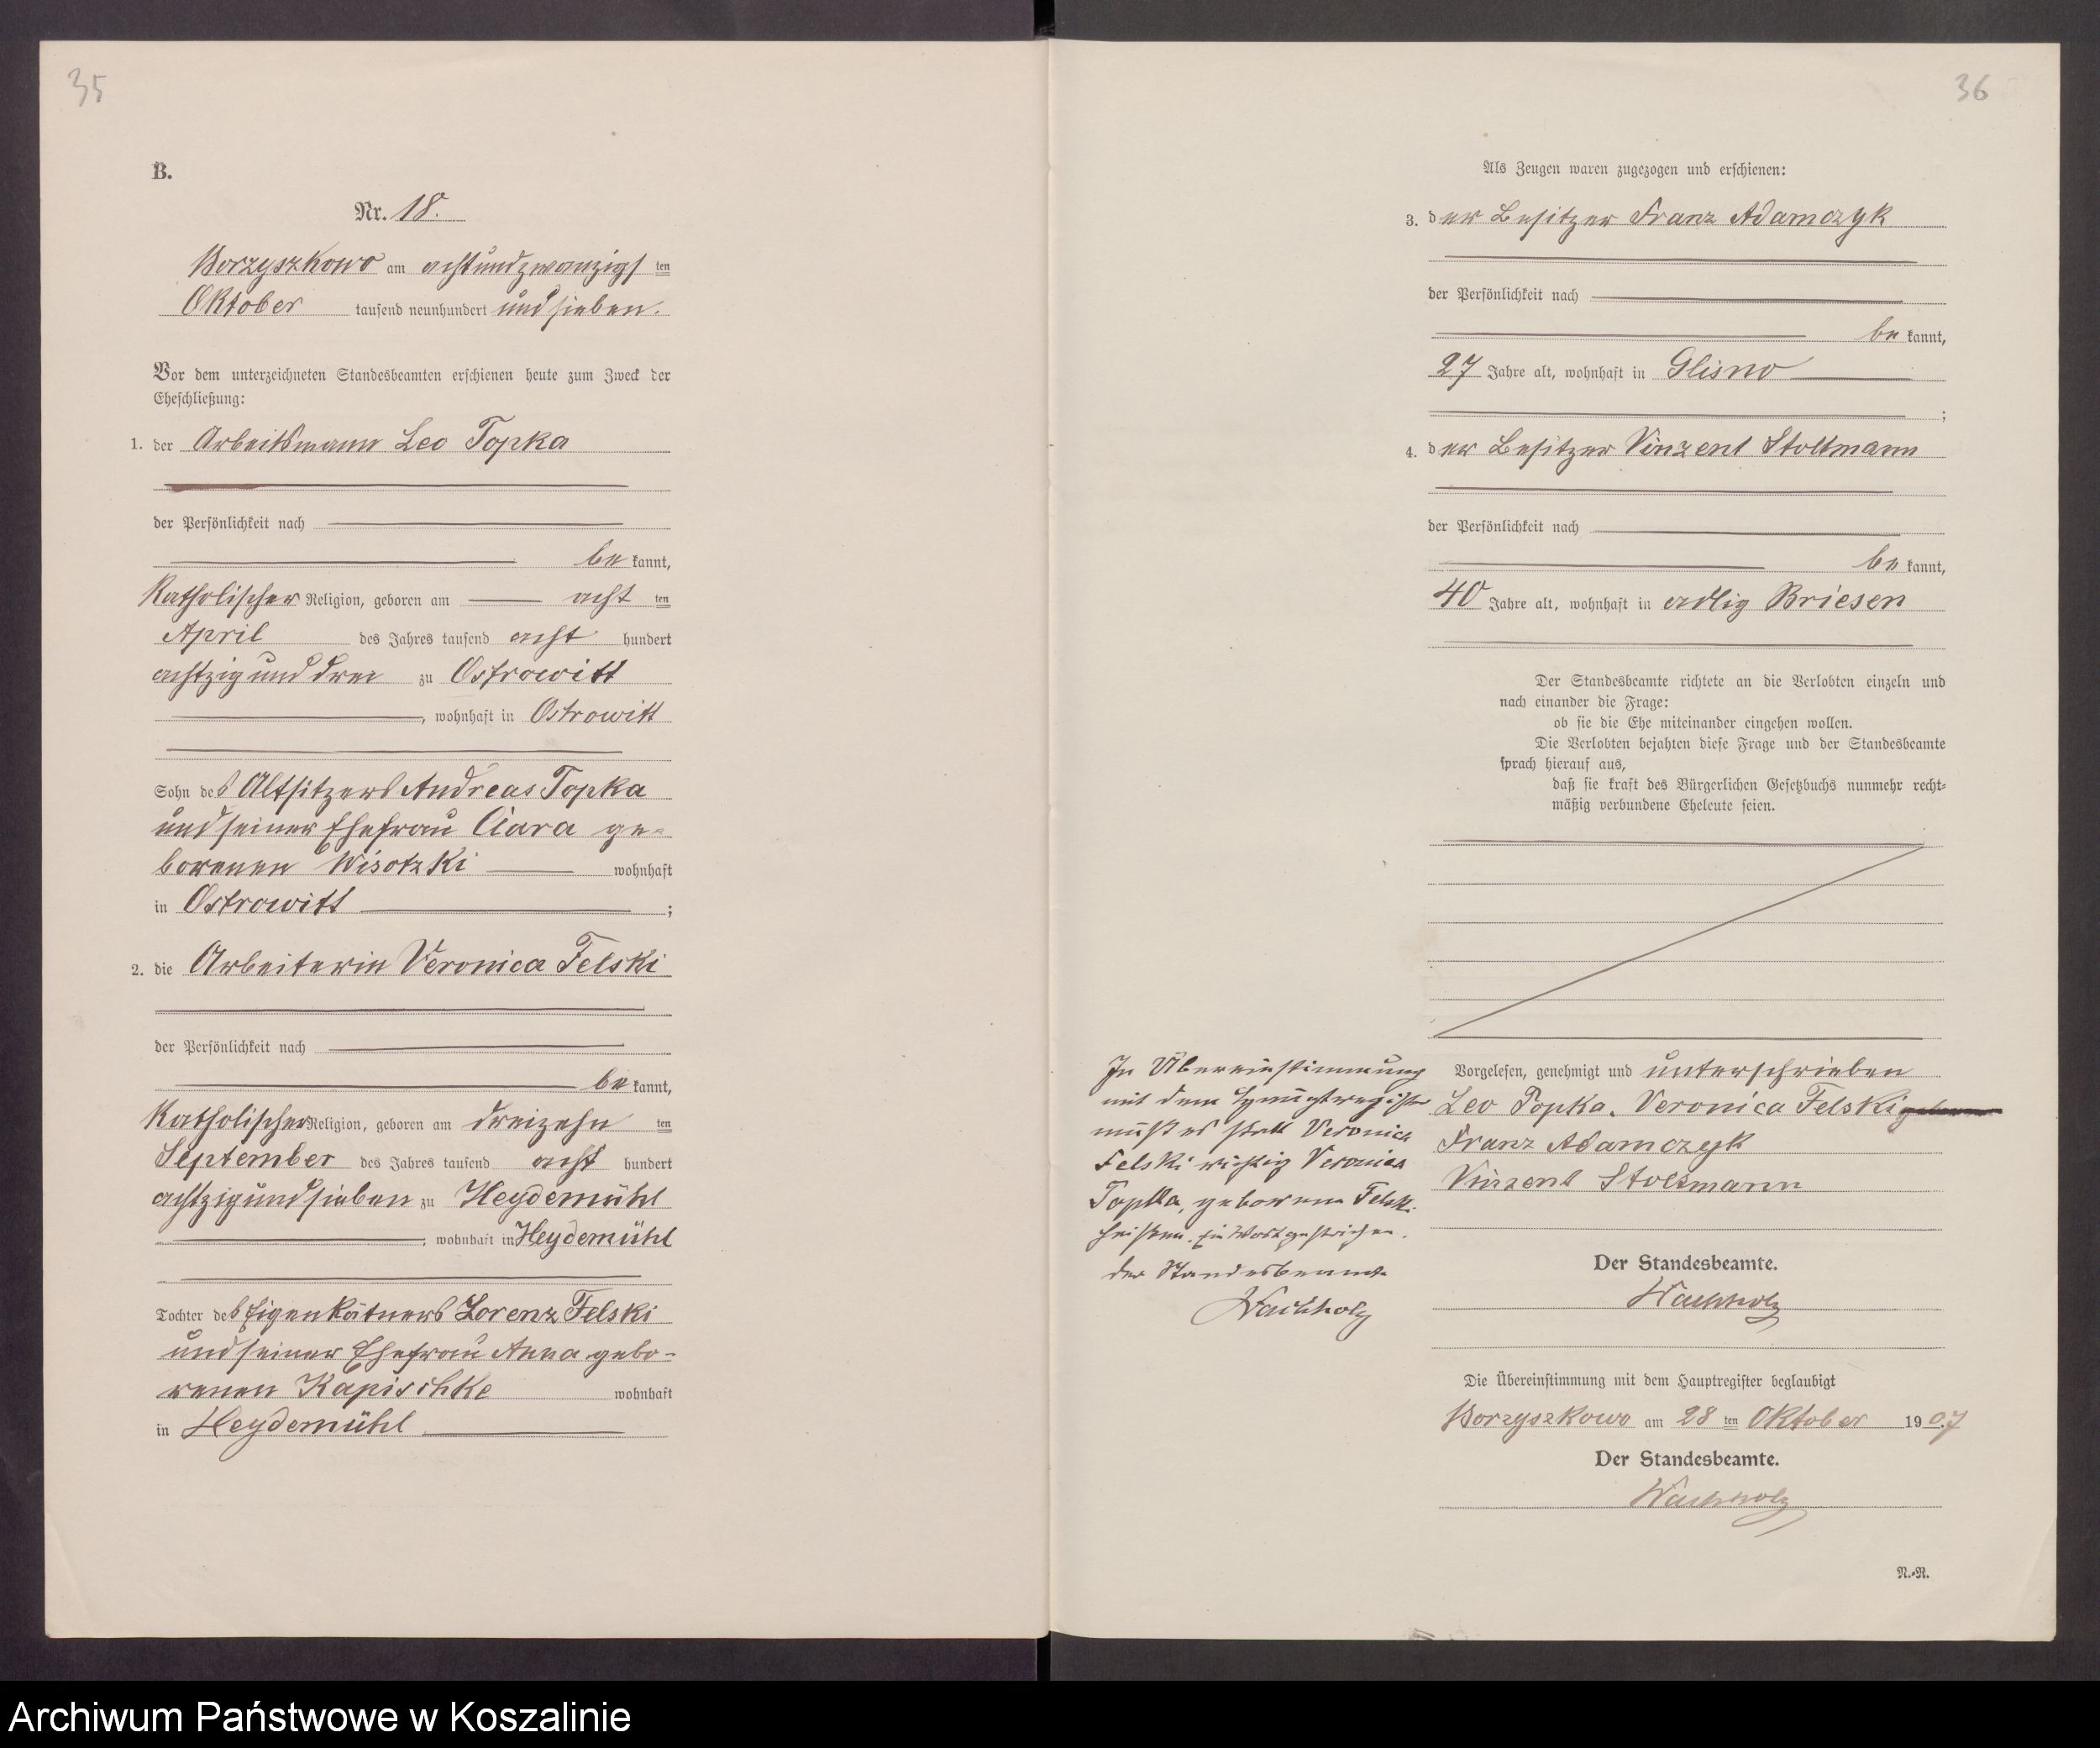 35
B.
Nr. 18.
Borzyszkowo am achtundzwanzigsten
Oktober tausend neunhundert und sieben.
Vor dem unterzeichneten Standesbeamten erschienen heute zum Zweck der
Eheschließung:
1. der Arbeitsmann Leo Topka
der Persönlichkeit nach
be kannt,
Katholischer Religion, geboren am acht ten
April des Jahres tausend acht hundert
achtzig und drei zu Ostrowitt
, wohnhaft in Ostrowitt
Sohn des Altsitzers Andreas Topka
und seiner Ehefrau Clara ge-
borenen Wisotzki wohnhaft
in Ostrowitt ;
2. die Arbeiterin Veronica Felski
der Persönlichkeit nach
be kannt,
Katholischer Religion, geboren am dreizehn ten
September des Jahres tausend acht hundert
achtzig und sieben zu Heydemühl
, wohnhaft in Heydemühl
Tochter des Eigenkätners Lorenz Felski
und seiner Ehefrau Anna gebo-
renen Kapischke wohnhaft
in Heydemühl
36
Als Zeugen waren zugezogen und erschienen:
3. der Besitzer Franz Adamczyk
der Persönlichkeit nach
be kannt,
27 Jahre alt, wohnhaft in Glisno
;
4. der Besitzer Vinzent Stoltmann
der Persönlichkeit nach
be kannt,
40 Jahre alt, wohnhaft in adlig Briesen
Der Standesbeamte richtete an die Verlobten einzeln und
nach einander die Frage:
ob sie die Ehe miteinander eingehen wollen.
Die Verlobten bejahten diese Frage und der Standesbeamte
sprach hierauf aus,
daß sie kraft des Bürgerlichen Gesetzbuchs nunmehr recht-
mäßig verbundene Eheleute seien.
Vorgelesen, genehmigt und unterschrieben
Leo Topka. Veronica Felski
Franz Adamczyk
Vinzent Stoltmann
In Übereinstimmung
mit dem Hauptregister
muß es statt Veronica
Felski richtig Veronica
Topka, geborene Felski
heißen. Ein Wort gestrichen.
der Standesbeamte
Wachholz
Der Standesbeamte.
Wachholz
Die Übereinstimmung mit dem Hauptregister beglaubigt
Borzyszkowo am 28 ten Oktober 1907
Der Standesbeamte.
Wachholz
N.-R.
Archiwum Państwowe w Koszalinie